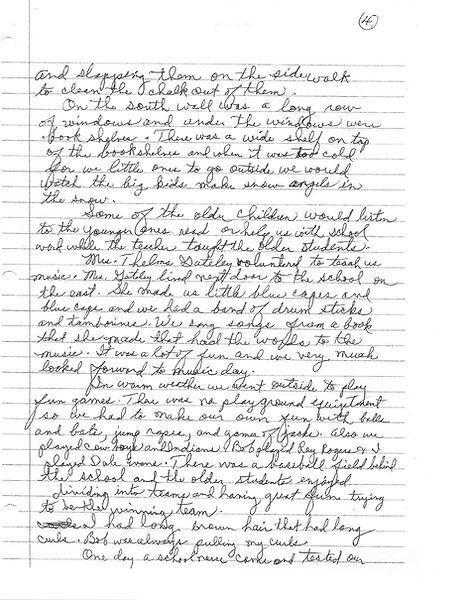 4
and slapping them on the side walk
to clean the chalk out of them.
On the south wall was a long row
of windows and under the windows were
book shelves. There was a wide shelf on top
of the bookshelves and when it was too cold
for we little ones to go outside we would
watch the big kids make snow angels in
the snow.
Some of the older children would listen
to the younger ones read or help us with school
work while the teacher taught the older students.
Mrs. Thelma Gateley volunted to teach us
music. Mrs. Gateley lived next door to the school on
the east. She made us little blue capes and
blue caps and we had a band of drum sticks
and tamborines. We sang songs from a book
that she made that had the words to the
music. It was a lot of fun and we very much
looked forward to music day.
In warm weather we went outside to play
fun games. There was no play ground equiptment
so we had to make our own fun with balls
and bats, jump ropes, and games of jacks. Also we
played cow boys and Indians. Bob played Roy Rogers & I
played Dale Evans. There was a baseball field behind
the school and the older students enjoyed
dividing into teams and having great fun trying
to be the winning team.
I had long brown hair that had long
curls. Bob was always pulling my curls.
One day a school nurse came and tested our